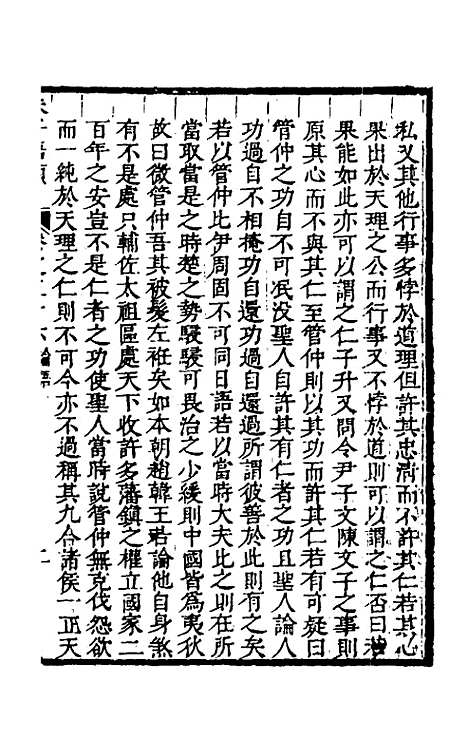 私又其他行事多悖於道理但許其忠淸而不許其仁若其心
果出於天理之公而行事又不悖於道則可以謂之仁否曰若
果能如此亦可以謂之仁子升又問令尹子文陳文子之事則
原其心而不與其仁至管仲則以其功而許其仁若有可疑曰
管仲之功自不可泯没聖人自許其有仁者之功且聖人論人
功過自不相掩功自還功過自還過所謂彼善於此則有之矣
若以管仲比伊周固不可同日語若以當時大夫比之則在所
當取當是之時楚之勢駸駸可畏治之少緩則中國皆為夷狄
故曰微管仲吾其被髮左衽矣如本朝趙韓王若論他自身煞
有不是處只輔佐太祖區處天下收許多藩鎭之權立國家二
百年之安豈不是仁者之功使聖人當時說管仲無克伐怨欲
而一純於天理之仁則不可今亦不過稱其九合諸侯一正天